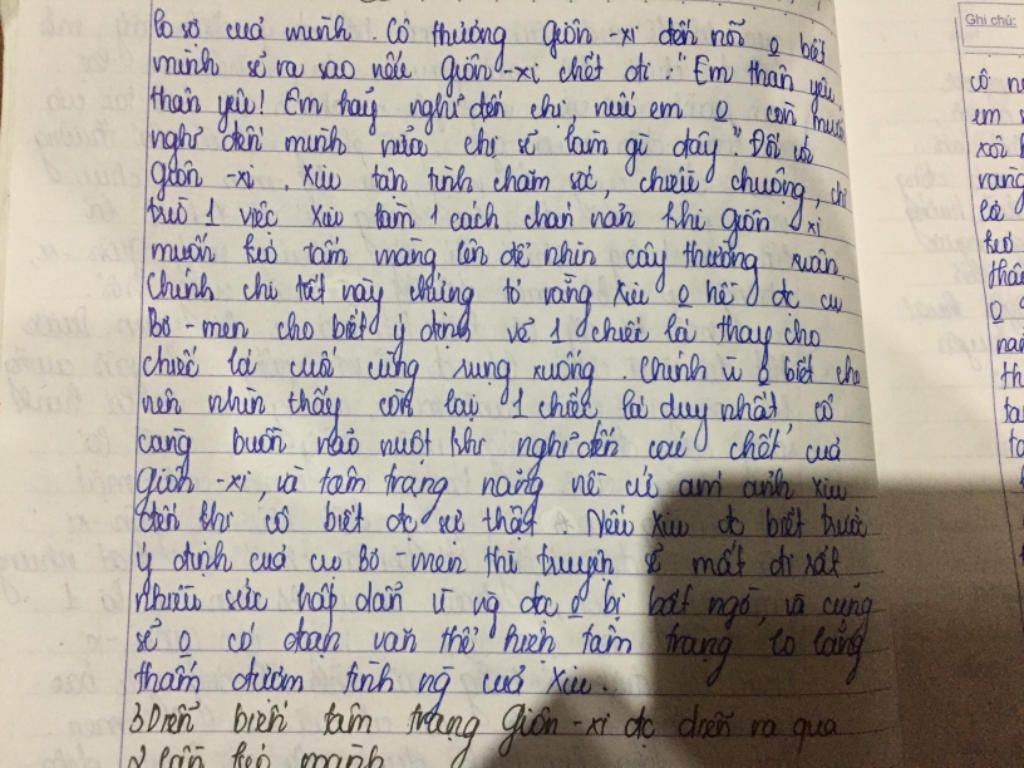 lo sợ của mình. Cô thương Giôn-xi đến nỗi o biết
mình sẽ ra sao nếu Giôn-xi chết đi: "Em thân yêu,
thân yêu! Em hãy nghĩ đến chị, nếu em o còn muốn
nghĩ đến mình nữa, chị sẽ làm gì đây" Đối với
Giôn-xi, Xiu tận tình chăm sóc, chiều chuộng, chỉ
trừ 1 việc Xiu làm 1 cách chán nản khi Giôn-xi
muốn kéo tấm màng lên để nhìn cây thường xuân.
Chính chi tiết này chứng tỏ rằng Xiu o hề đc cụ
Bơ-men cho biết ý định vẽ 1 chiếc lá thay cho
chiếc lá cuối cùng rụng xuống. Chính vì o biết cho
nên nhìn thấy còn lại 1 chiếc lá duy nhất, cô
càng buồn não nuột khi nghĩ đến cái chết của
Giôn-xi, và tâm trạng nặng nề cứ ám ảnh Xiu
đến khi cô biết đc sự thật. Nếu Xiu đc biết trước
ý định của cụ Bơ-men thì truyện sẽ mất đi rất
nhiều sức hấp dẫn vì ng đọc o bị bất ngờ, và cũng
sẽ o có đoạn văn thể hiện tâm trạng lo lắng
thấm đượm tình ng của Xiu.
3 Diễn biến tâm trạng Giôn-xi đc diễn ra qua
2 lần kéo mành
Ghi chú:
em